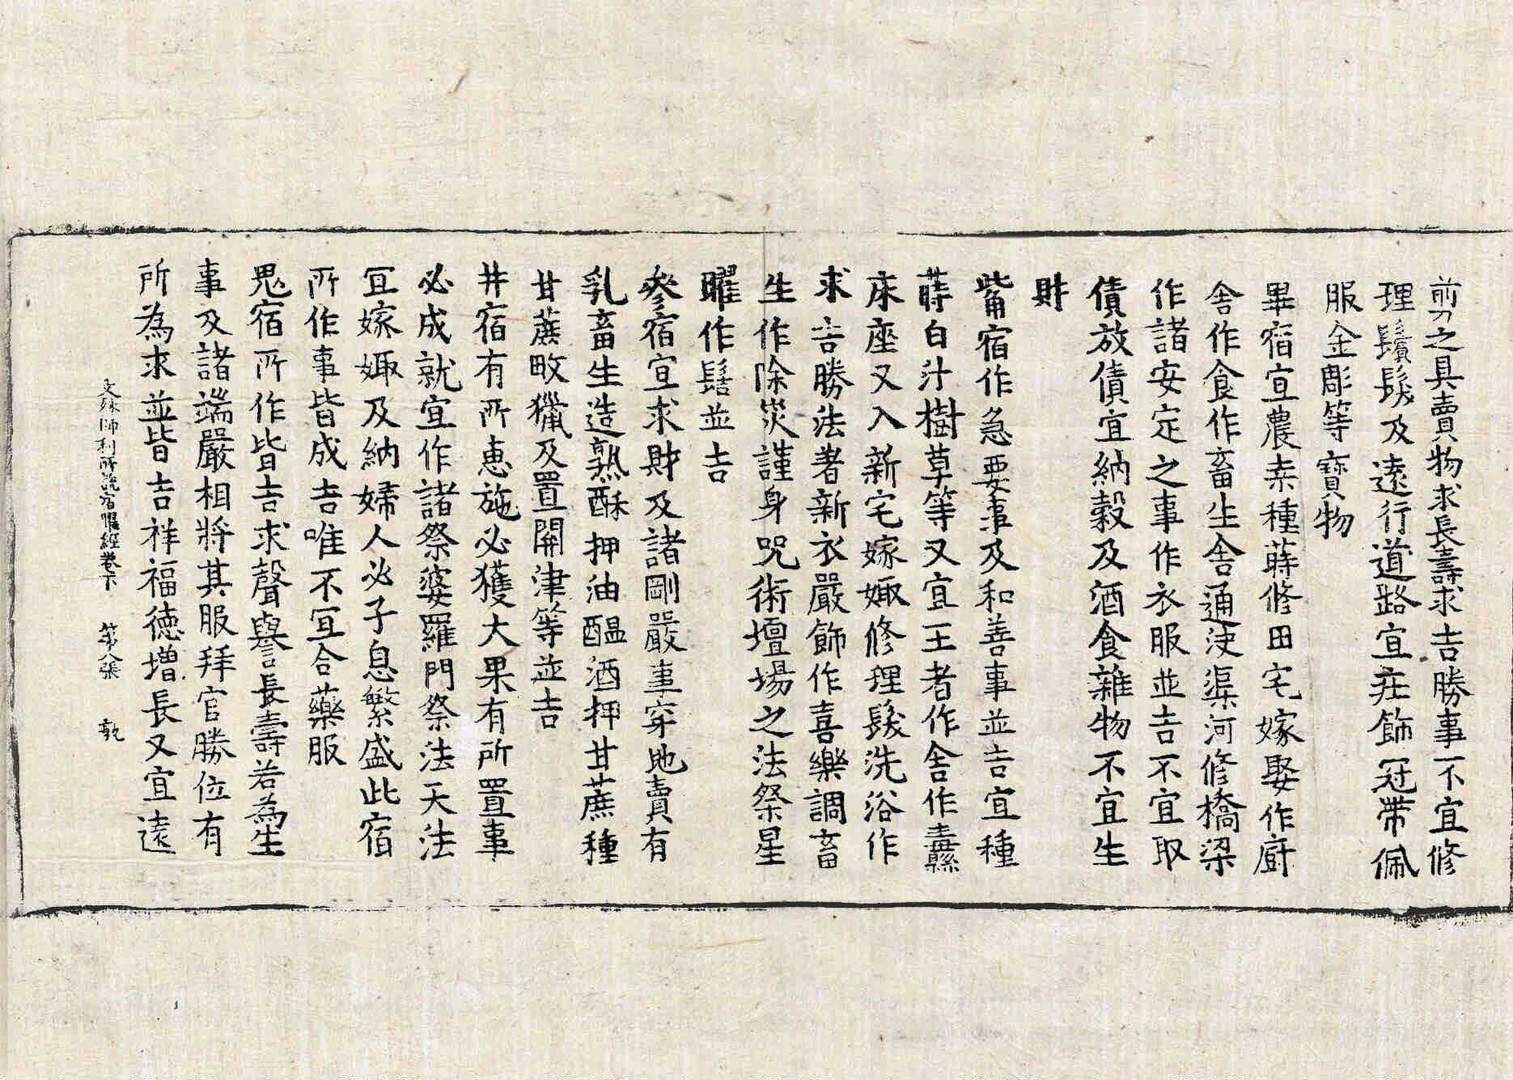 剪刀之具賣物求長壽求吉勝事不宜修
理鬚髮及遠行道路宜莊飾冠帶佩
服金彫等寶物
畢宿宜農桒種蒔修田宅嫁娶作廚
舍作食作畜生舍通决渠河修橋梁
作諸安定之事作衣服並吉不宜取
債放債宜納穀及酒食雜物不宜生
財
觜宿作急要事及和善事並吉宜種
蒔白汁樹草等又宜王者作舍作纛
床座又入新宅嫁娵修理髮洗浴作
求吉勝法著新衣嚴飾作喜樂調畜
生作除災謹身呪術壇場之法祭星
曜作髻並吉
參宿宜求財及諸剛嚴事穿地賣有
乳畜生造熟酥押油醞酒押甘蔗種
甘蔗畋獵及置開津等並吉
井宿有所惠施必獲大果有所置事
必成就宜作諸祭婆羅門祭法天法
宜嫁娵及納婦人必子息繁盛此宿
所作事皆成吉唯不宜合藥服
鬼宿所作皆吉求聲譽長壽若為生
事及諸端嚴相將其服拜官勝位有
所為求並皆吉祥福德增長又宜遠
文殊師利所說宿曜經卷下 第八張 執